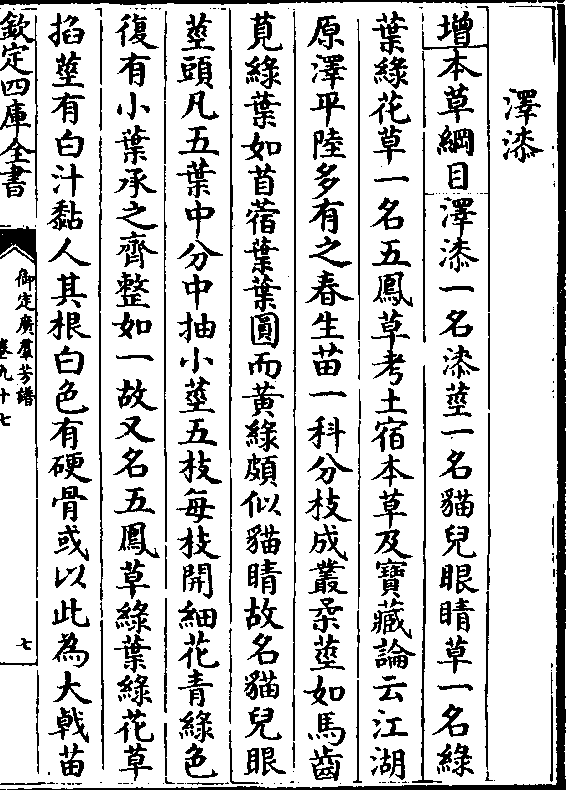 澤漆
增本草綱目澤漆一名漆莖一名貓兒眼睛草一名綠
葉綠花草一名五鳳草考土宿本草及寶藏論云江湖
原澤平陸多有之春生苗一科分枝成叢柔莖如馬齒
莧綠葉如苜蓿葉葉圓而黃綠頗似貓睛故名貓兒眼
莖頭凡五葉中分中抽小莖五枝每枝開細花青綠色
復有小葉承之齊整如一故又名五鳳草綠葉綠花草
掐莖有白汁黏人其根白色有硬骨或以此為大戟苗
欽定四庫全書
御定廣羣芳譜
卷九十七
七